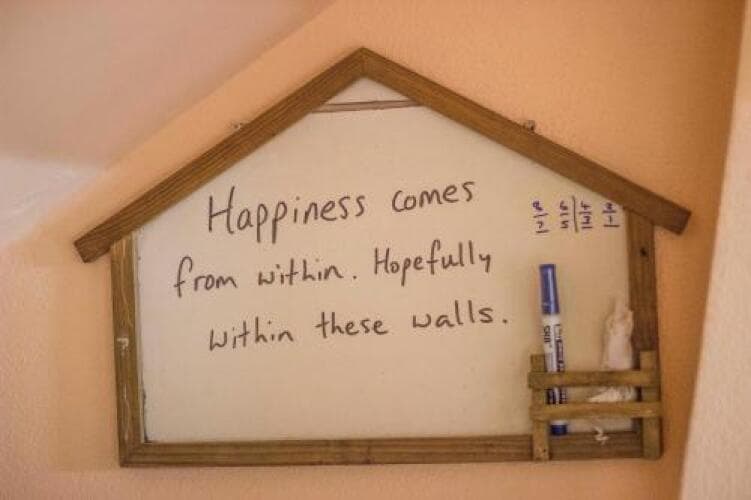 Happiness comes
from within. Hopefully
within these walls.